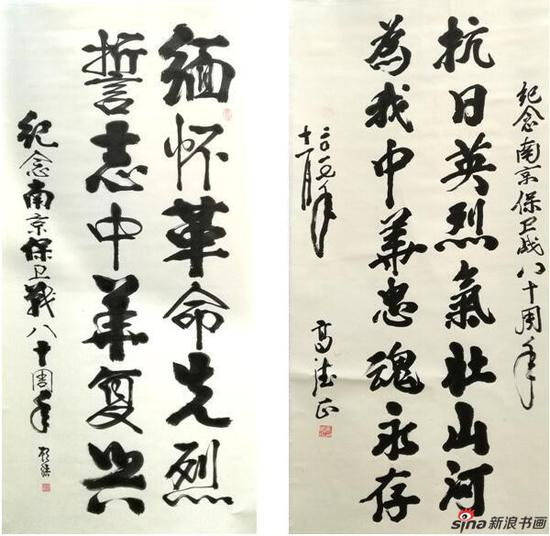 緬怀革命先烈
誓志中華复兴
紀念南京保卫戰八十周年
纪念南京保卫战八十周年
抗日英烈氣壮山河
為我中華忠魂永存
十一月
高德正
sina新浪书画